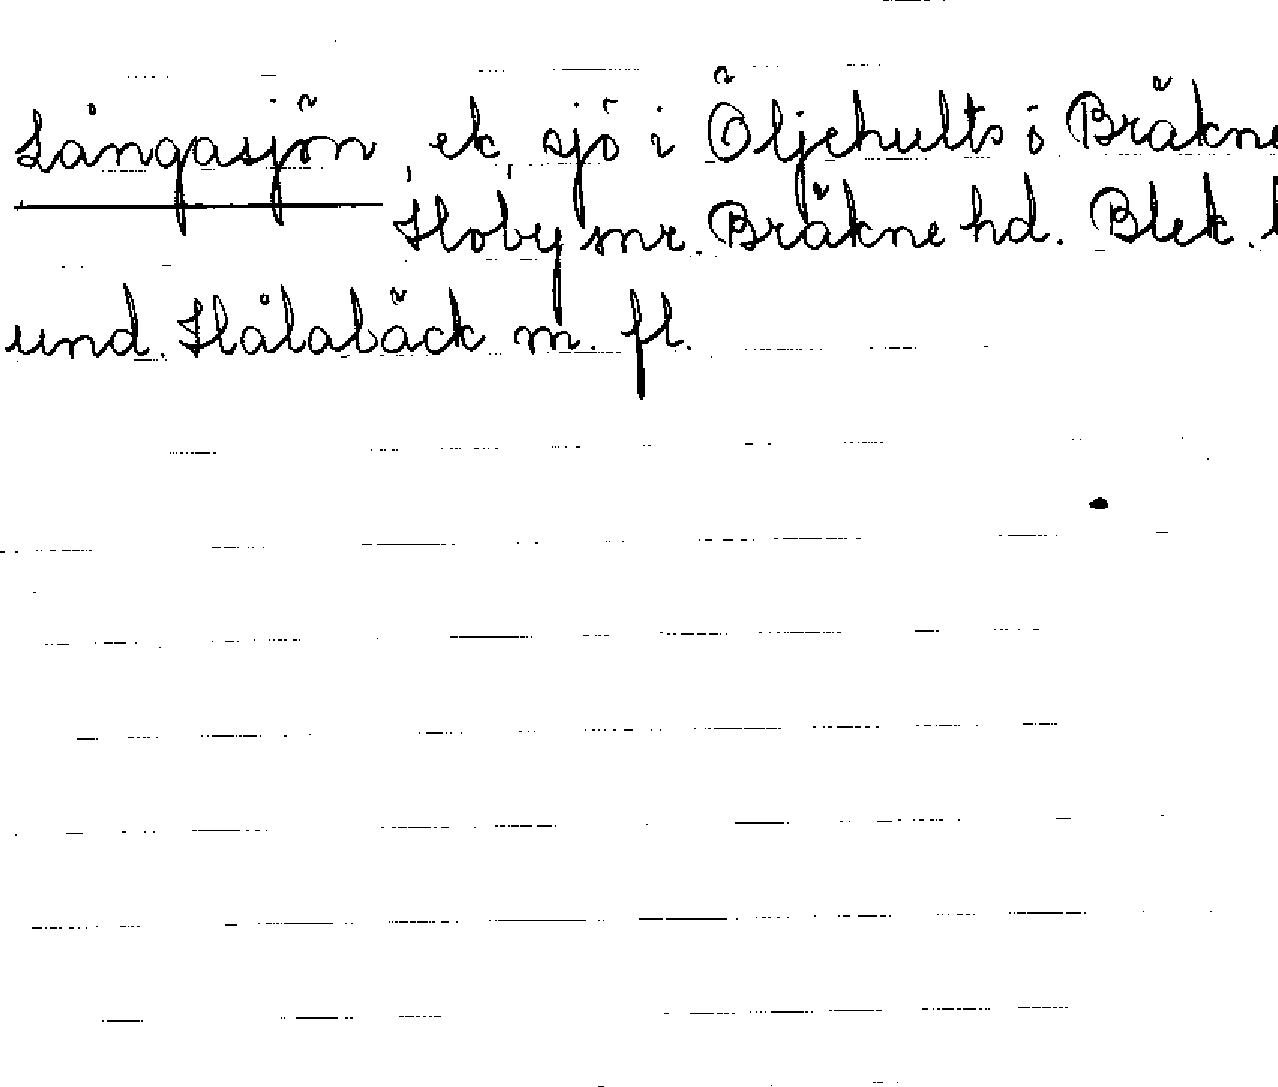 Långasjön, ek, sjö i Öljehults o Bräkne
Hoby snr. Bräkne hd. Blek. l
und. Hålabäck m. fl.